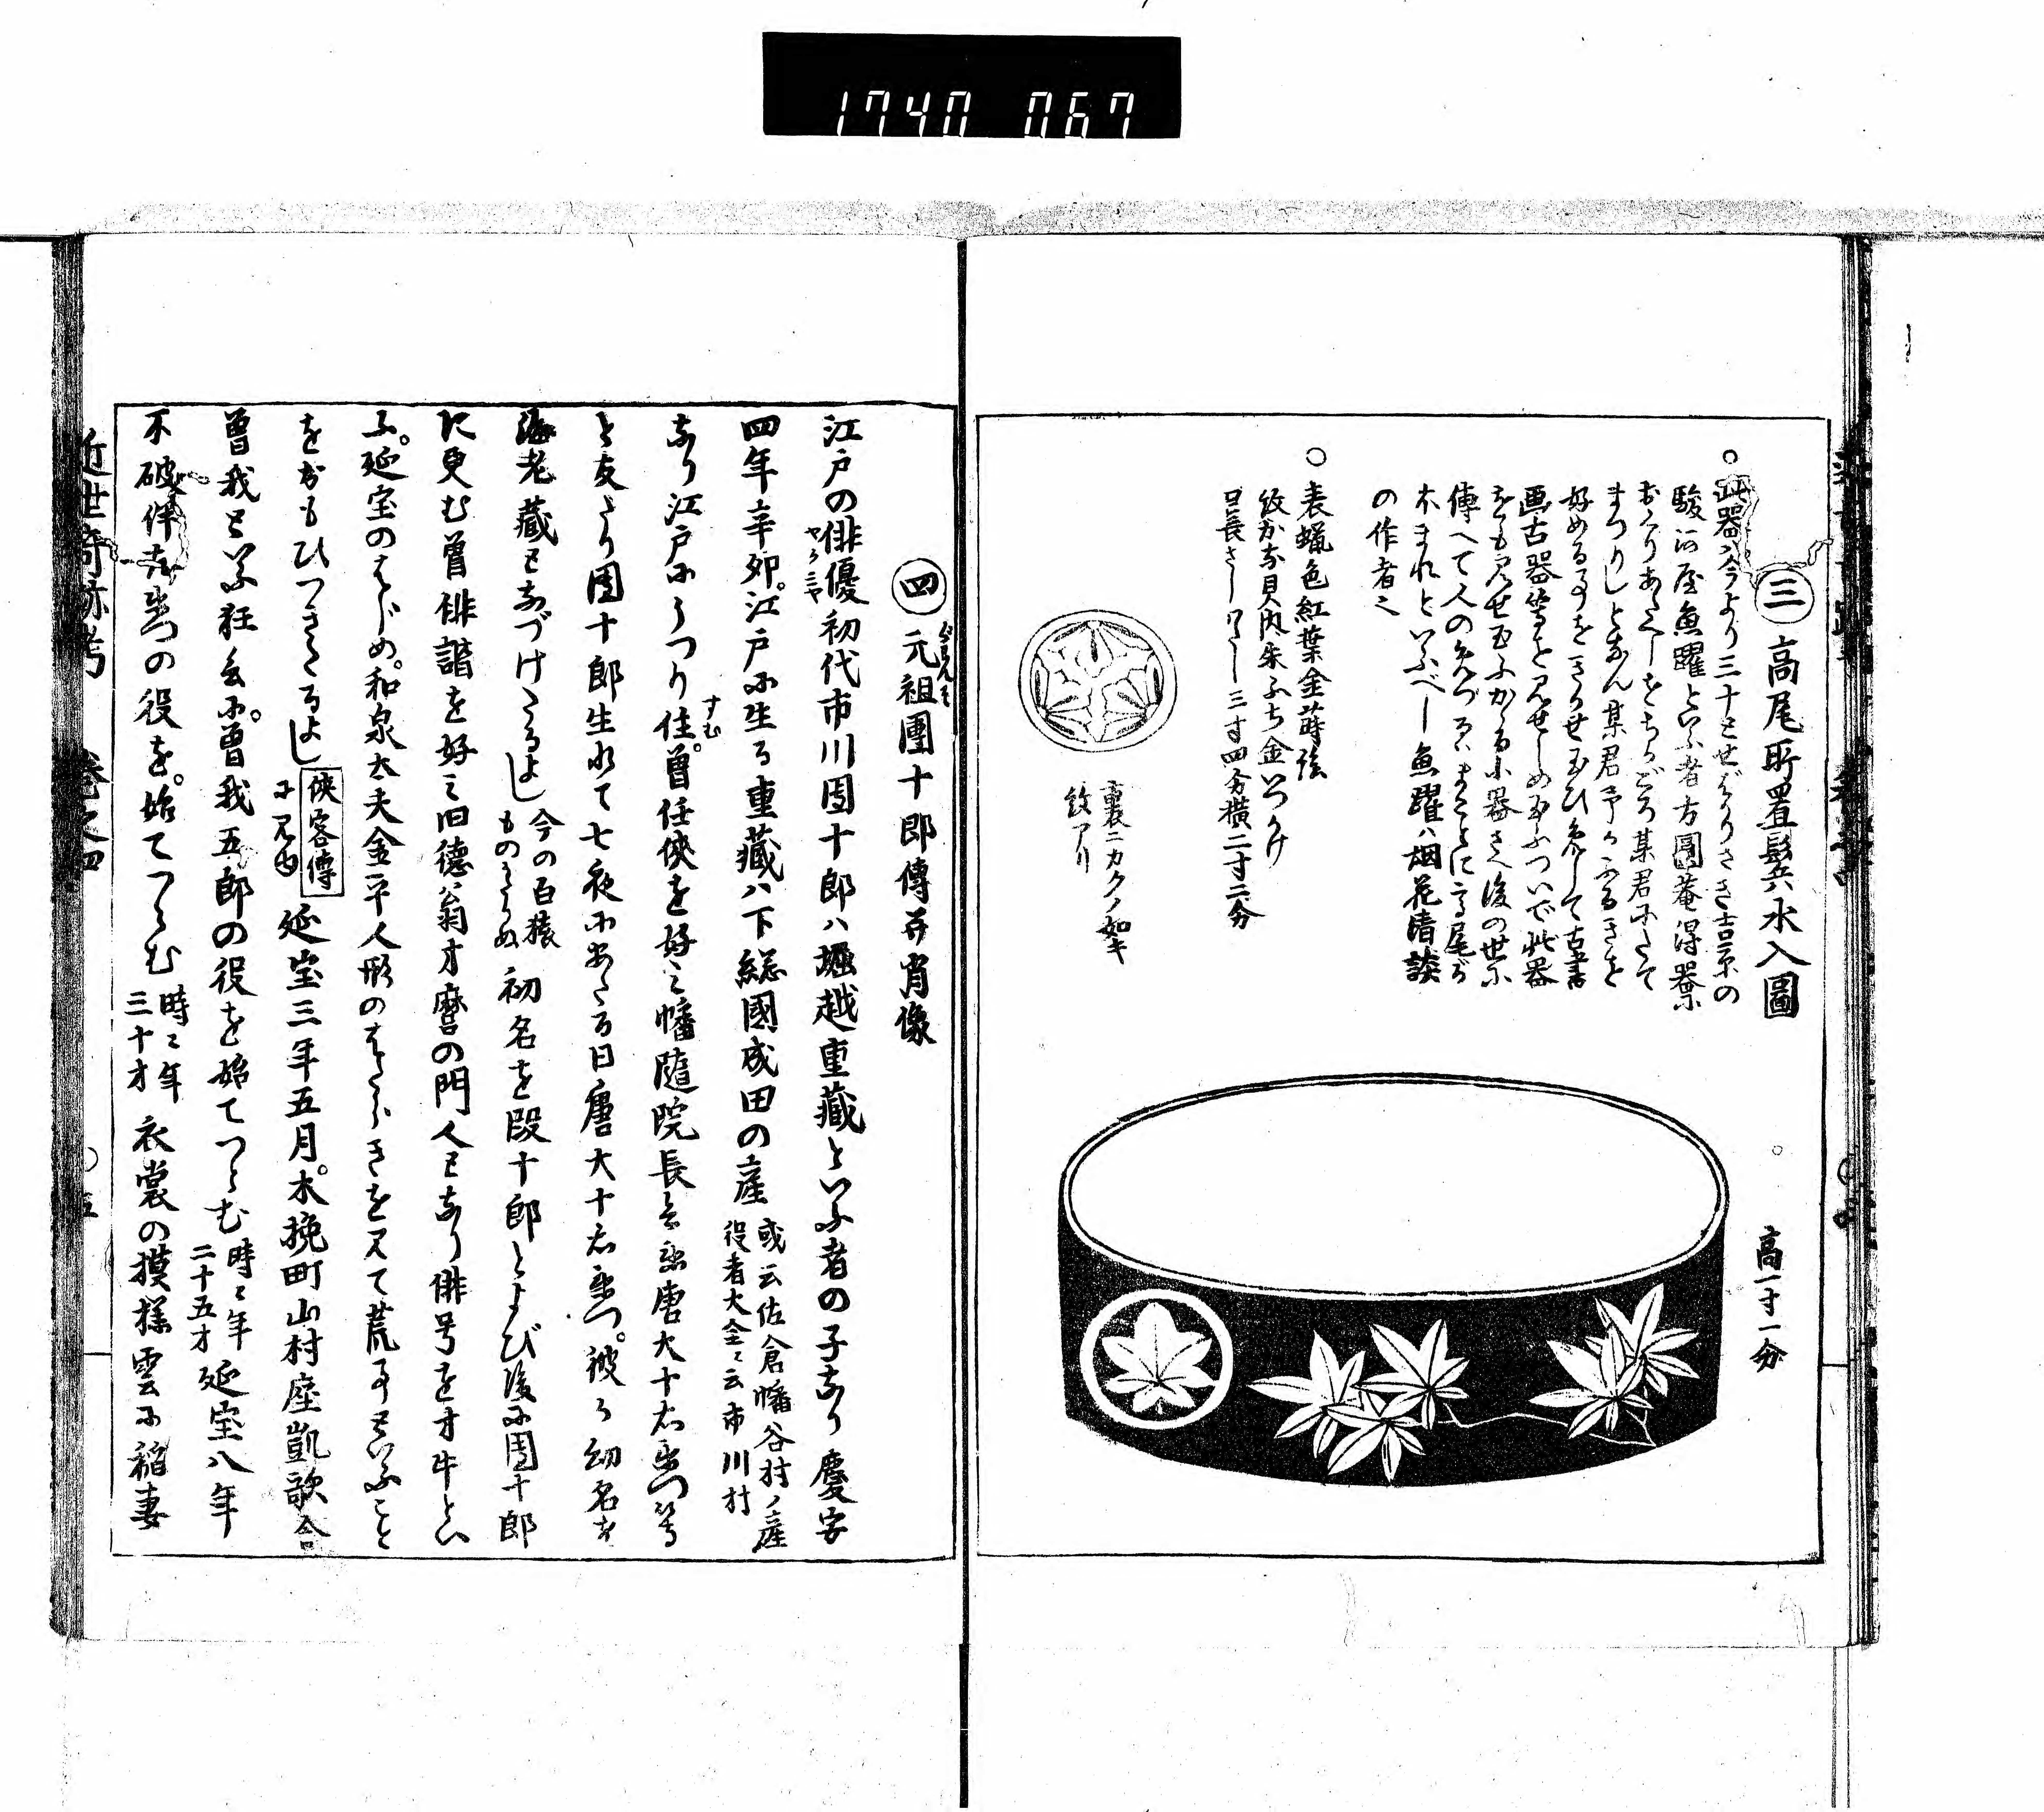 1740 067
㊂高尾所置鬂水入圖
○此器ハ今より三十とせばかりさき吉原の
駿河屋魚躍といふ者方圓菴得器に
おくりあたへしをちかごろ某君にたて
まつりしとなん某君予がふるきを
好める事をきかせ玉ひめして古書
画古器等を見せしめ玉ふついで此器
をも見せ玉ふかゝる小器さへ後の世に
傳へて人のめづるハまことに高尾が
ほまれといふべし魚躍ハ烟花清談
の作者也
○表蝋色紅葉金蒔絵
紋かな貝内朱ふち金いつかけ
口長さしわたし三寸四分横二寸二分
裏ニカクノ如キ
紋アリ
高一寸一分
㊃元祖團十郎傳并肖像
江戸の俳優初代市川團十郎ハ堀越重藏といふ者の子なり慶安
四年辛卯。江戸に生る重藏ハ下総國成田の産 或云佐倉幡谷村ノ産 役者大全ニ云市川村
なり江戸にうつり住。曽任侠を好ミ幡隨院長兵衛唐犬十右衛門等
と友たり團十郎生れて七夜にあたる日唐犬十右衛門。彼が幼名を
海老藏となづけたるよし 今の白猿 ものがたりぬ 初名を段十郎とよび後に團十郎
に更む曽俳諧を好ミ旧徳翁才麿の門人となり俳号を才牛とい
ふ。延宝のはじめ。和泉太夫金平人形のはたらきを見て荒事といふこと
をおもひつきたるよし 侠客傳 に見ゆ 延宝三年五月。木挽町山村座凱歌合
曽我といふ狂言に。曽我五郎の役を始てつとむ 時ニ年 二十五才 延宝八年
不破伴左衛門の役を。始てつとむ 時ニ年 三十才 衣裳の摸様雲に稲妻
近世奇跡考 巻之四 ○五